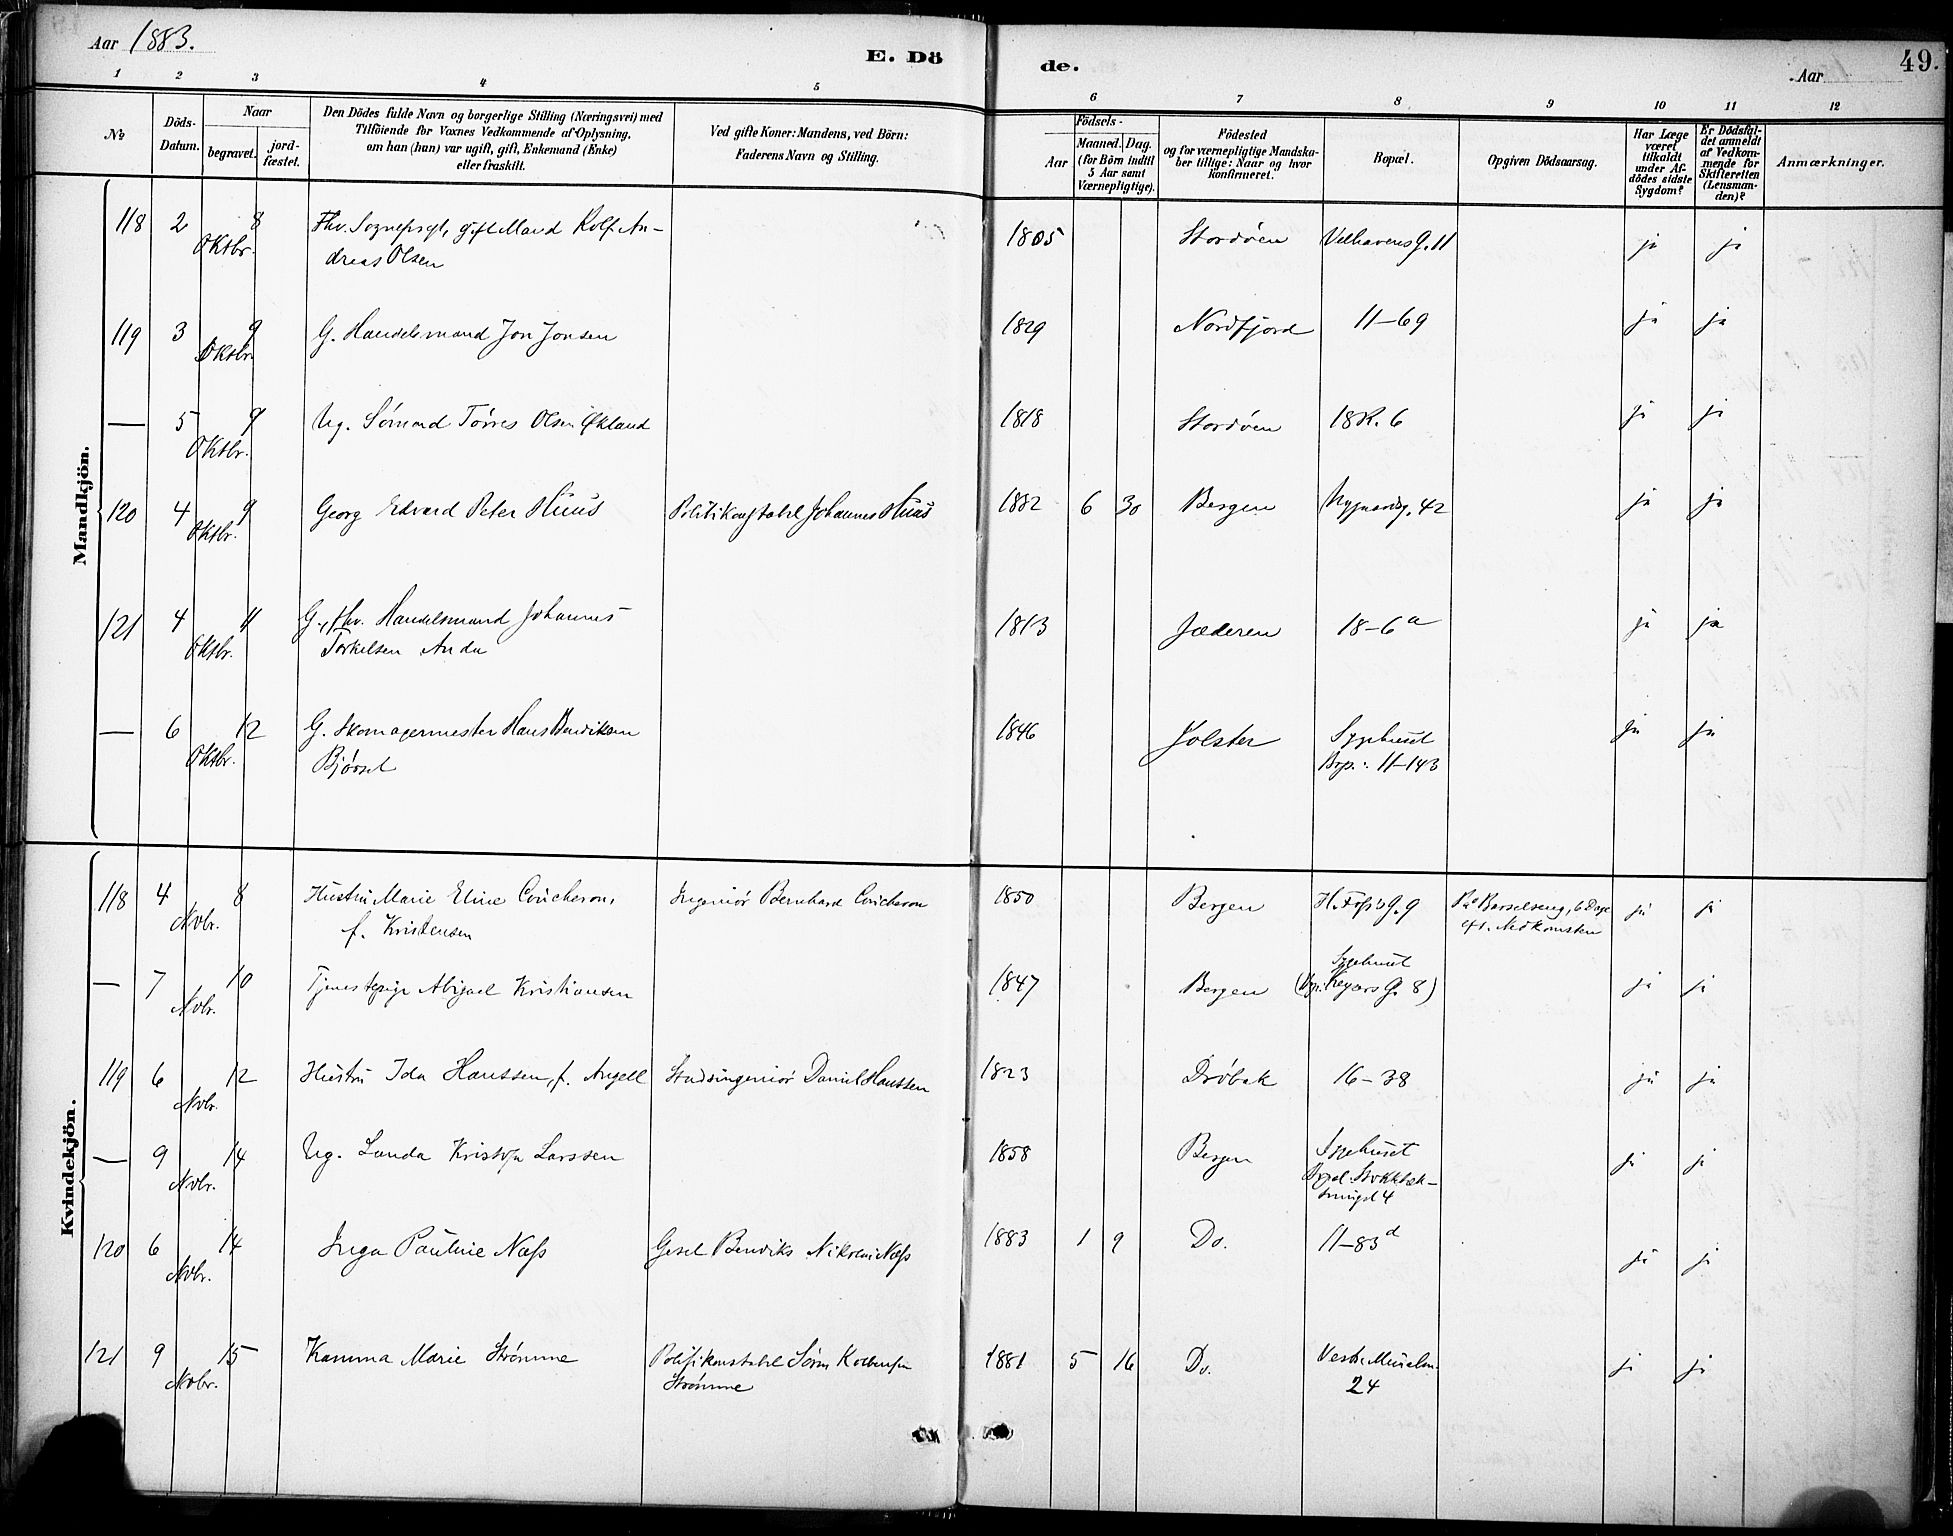 Aar 1883.
E. Döde.
Aar
49.
1 2 3 4 5 6 7 8 9 10 11 12
No
Döds-
Datum.
Naar
begravet.
jord-
fæstet.
Den Dödes fulde Navn og borgerlige Stilling (Næringsvei) med
Tilföiende for Voxnes Vedkommende af Oplysning,
om han (hun) var ugift, gift, Enkemand (Enke)
eller fraskilt.
Ved gifte Koner: Mandens, ved Börn:
Faderens Navn og Stilling.
Födsels-
Aar
Maaned. Dag.
(for Börn indtil
5 Aar samt
Værnepligtige).
Födested
og for værnepligtige Mandska-
ber tillige: Naar og hvor
konfirmeret.
Bopæl.
Opgiven Dödsaarsag.
Har Læge
været
tilkaldt
under Af-
dödes sidste
Sygdom?
Er Dödsfal-
det anmeldt
af Vedkom-
mende for
Skifteretten
(Lensman-
den)?
Anmærkninger.
Mandkjön.
118 2 8 Fhv. Sogneprest, gift Mand Rolf An- 1805 Stordöen Velhavens G. 11 ja ja
Oktbr. dreas Olsen
119 3 9 G. Handelsmand Jon Jonsen 1829 Nordfjord 11-69 ja ja
Oktbr.
— 5 9 Ug. Sömand Törres Olsen Økland 1818 Stordöen 18R. 6 ja ja
Oktbr.
120 4 9 Georg Edvard Peter Huus Politikonstabel Johannes Huus 1882 6 30 Bergen Nygaardsg. 42 ja ja
Oktbr.
121 4 11 G., fhv. Handelsmand Johannes 1813 Jæderen 18-6a ja ja
Oktbr. Torkelsen Anda
— 6 12 G. Skomagermester Hans Bendiksen 1846 Jölster Sygehuset ja ja
Oktbr. Bjørset Bop.: 11-143
Kvindekjön.
118 4 8 Hustru Marie Eline Coucheron, Ingeniör Bernhard Coucheron 1850 Bergen H. Foss's G. 9 Paa Barselseng, 6 Dage ja ja
Nvbr. f. Kristensen eft. Nedkomsten
— 7 10 Tjenestepige Abigael Kristiansen 1847 Bergen Sygehuset ja ja
Nvbr. Keysers G. 8)
119 6 12 Hustru Ida Hanssen, f. Angell Stadsingeniör Daniel Hanssen 1823 Dröbak 16-38 ja ja
Nvbr.
— 9 14 Ug. Landa Kristofa Larssen 1858 Bergen Sygehuset ja ja
Nvbr.
120 6 14 Inga Pauline Næss Gesel Bendiks Nikolai Næss 1883 1 9 Do. 11-83d ja ja
Nvbr.
121 9 15 Kamma Marie Strömme Politikonstabel Sören 1881 5 16 Do. Vestr. ja ja
Nvbr. Strömme 24